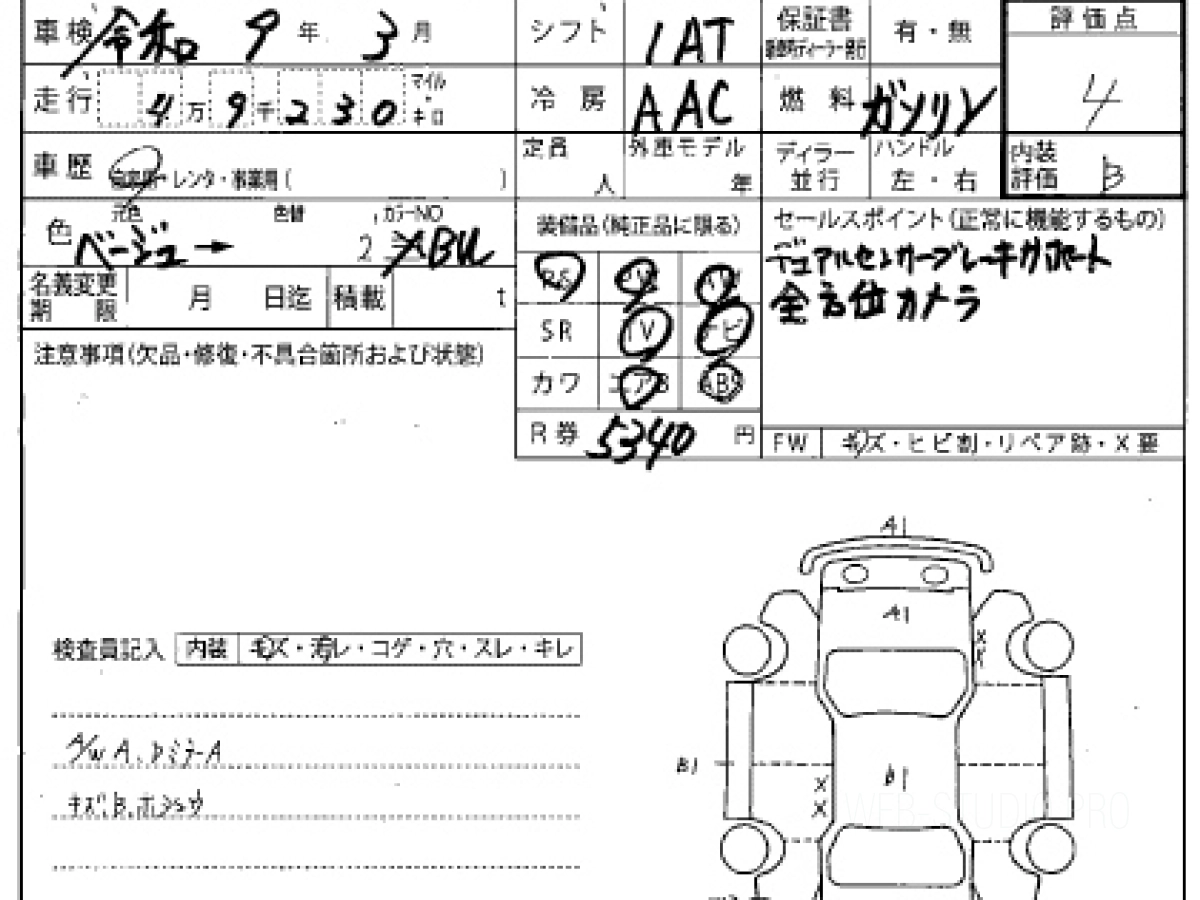 車検 令和 9 年 3 月
シフト 1AT
保証書
有・無
評価点
走行 4万 9千 2 3 0 マイル・キロ
冷房 AAC
燃料 ガソリン
4
車歴 自家用・レンタ・事業用( )
定員 人
外車モデル 年
ディラー 並行
ハンドル 左・右
内装評価 B
色 元色 色替 カラーNO
ベージュ → XBU
装備品(純正品に限る)
セールスポイント(正常に機能するもの)
デュアルセンサーブレーキサポート
全方位カメラ
名義変更期限 月 日迄 積載 t
SR TV ナビ
カワ エアB ABS
R券 5340 円
注意事項(欠品・修復・不具合箇所および状態)
FW キズ・ヒビ割・リペア跡・X要
A1
A1
検査員記入 内装 キズ・汚レ・コゲ・穴・スレ・キレ
X
X
A/W A、Dミラー A
B1
B1
X
X
WEB-STUDIO.PRO